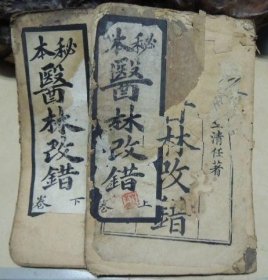 秘本
醫林改錯
下卷
秘本
醫林改錯
上卷
林改錯
王清任著